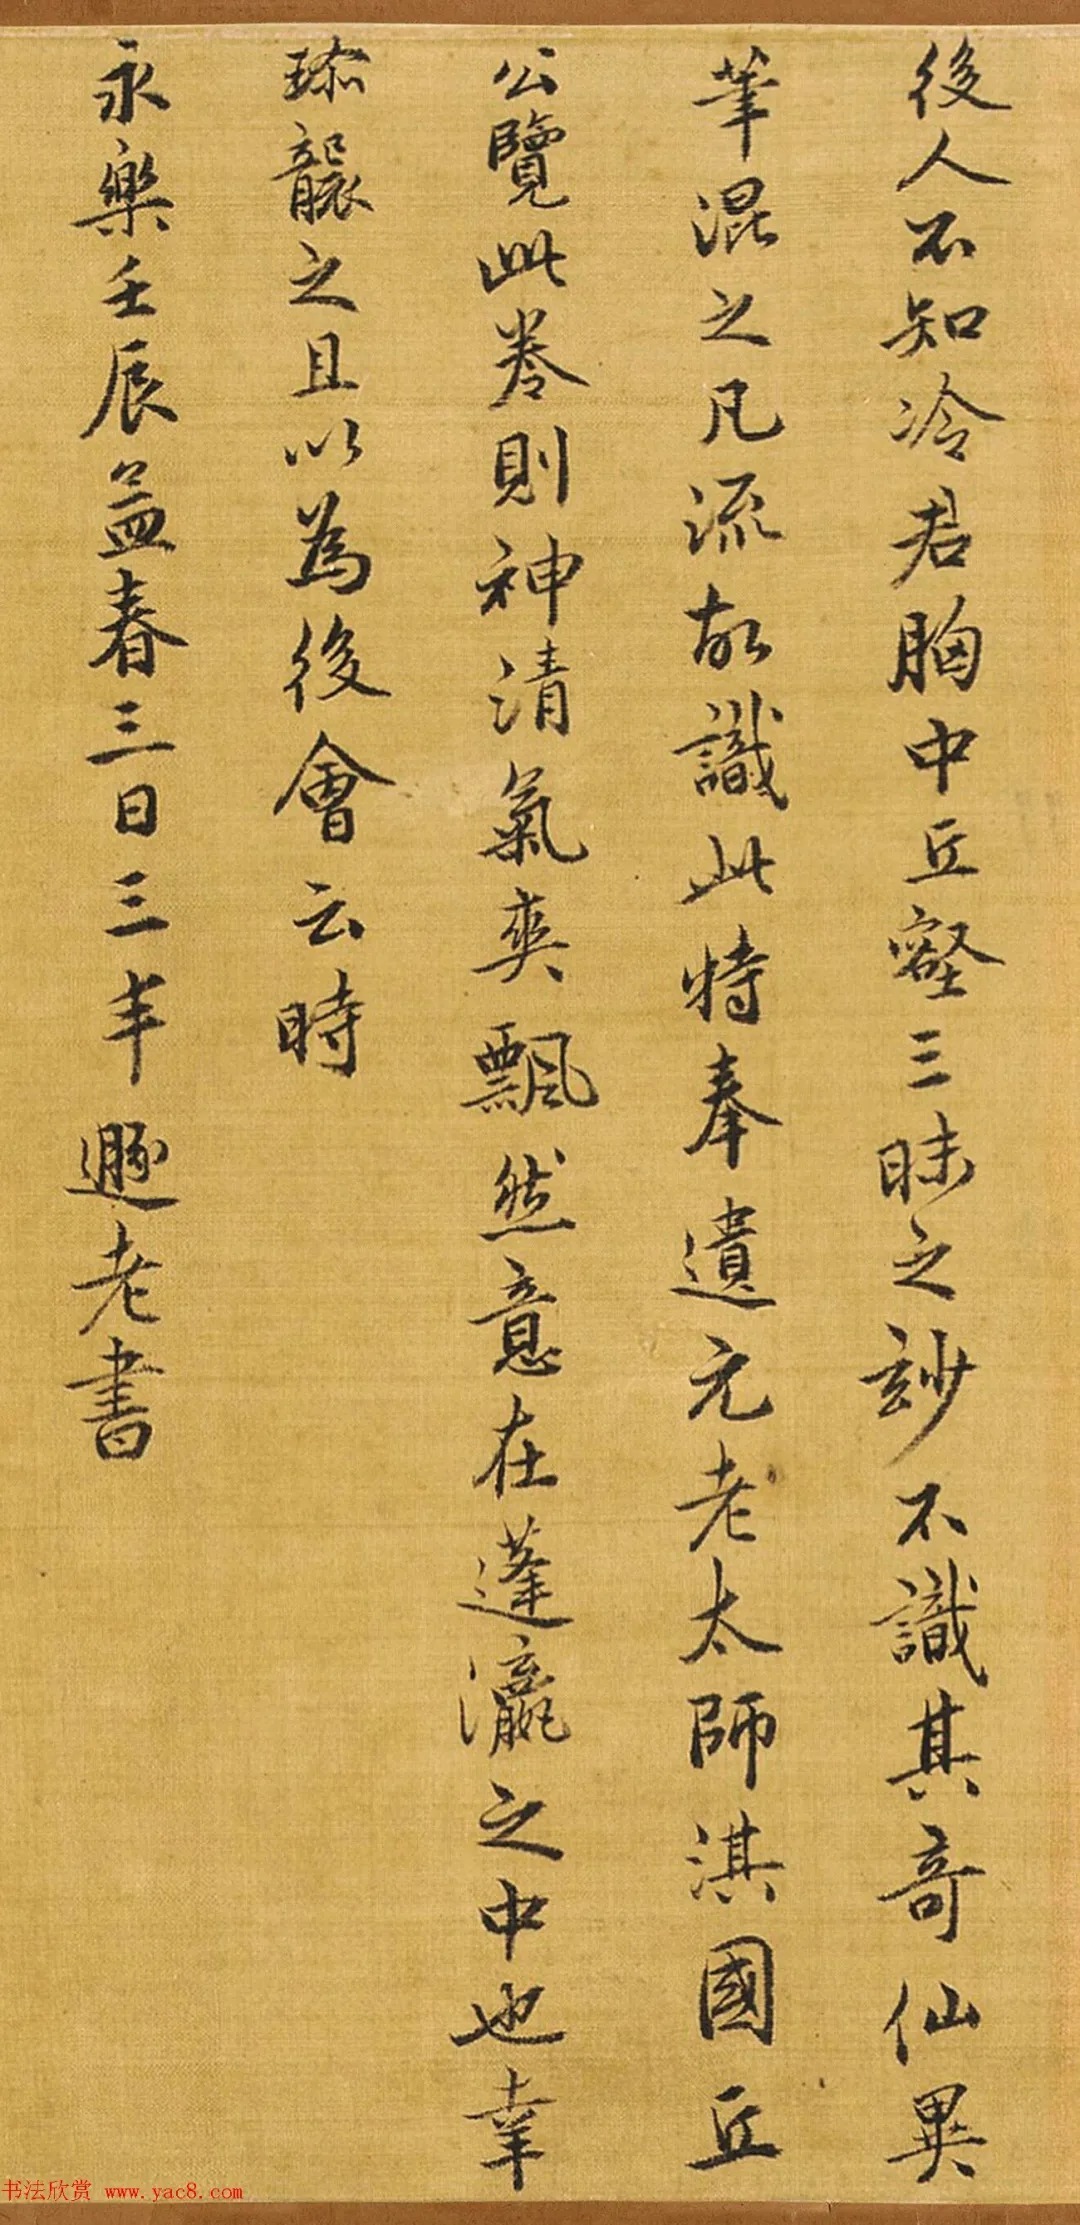 後人不知冷君胸中丘壑三昧之玅不識其奇仙異
筆混之凡流故識此特奉遺元老太師淇國丘
公覽此卷則神清氣爽飄然意在蓬瀛之中也幸
珎襲之且以為後會云時
永樂壬辰孟春三日三丰遯老書
书法欣赏 www.yac8.com